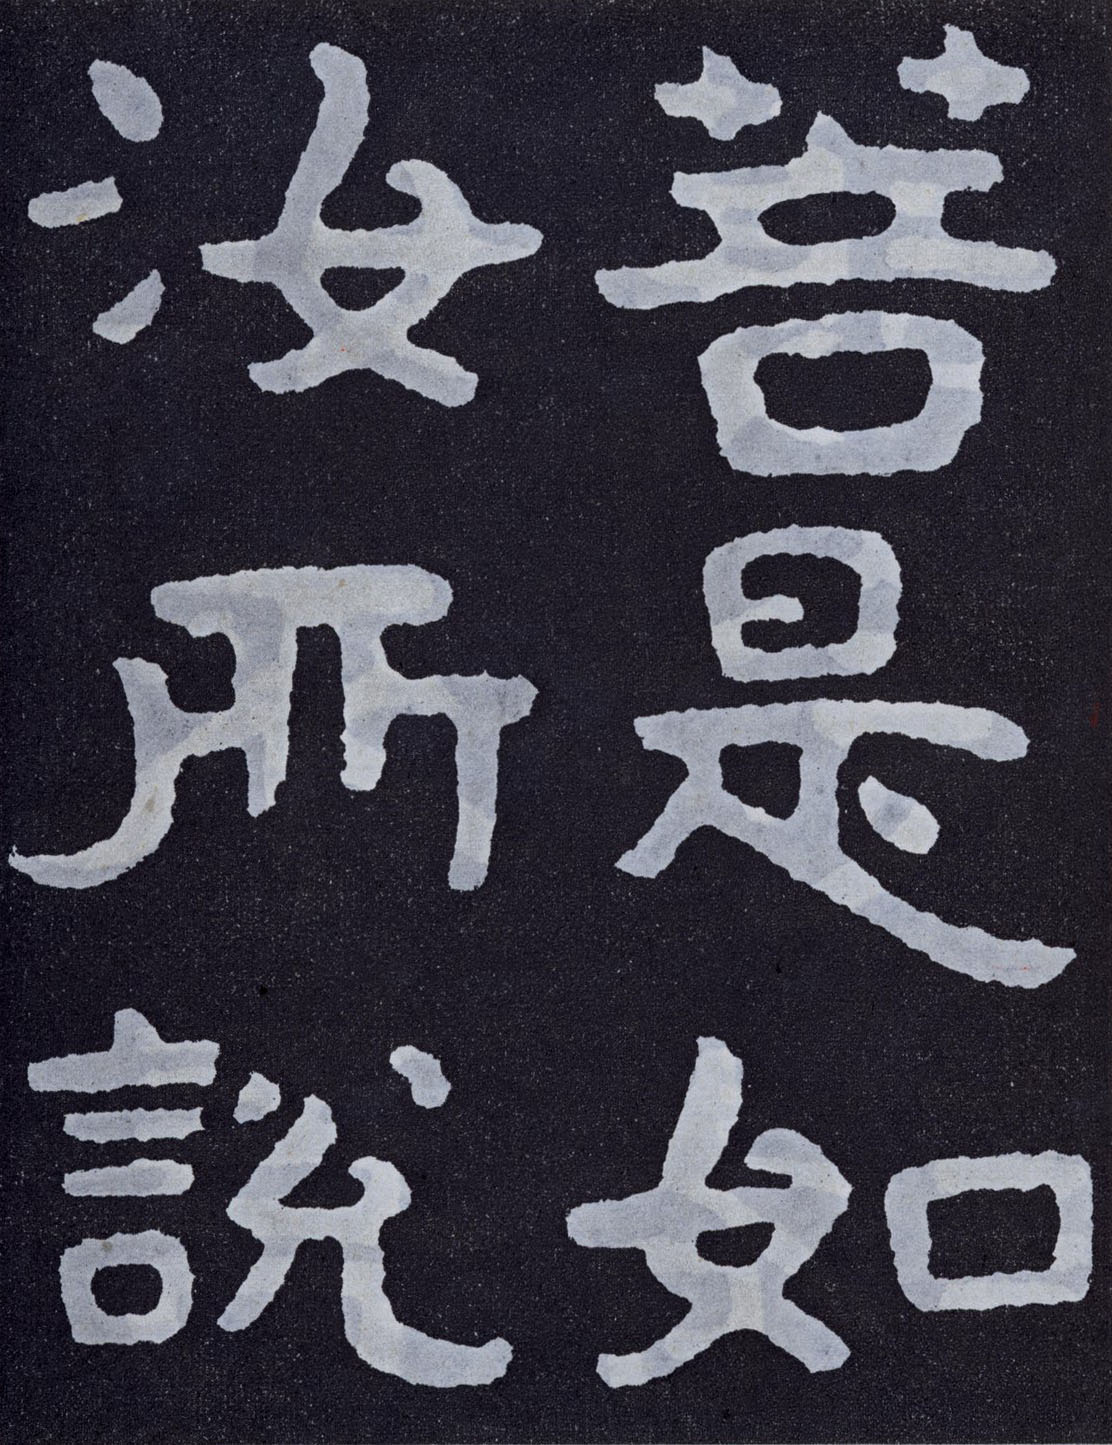 菩是如
汝所說